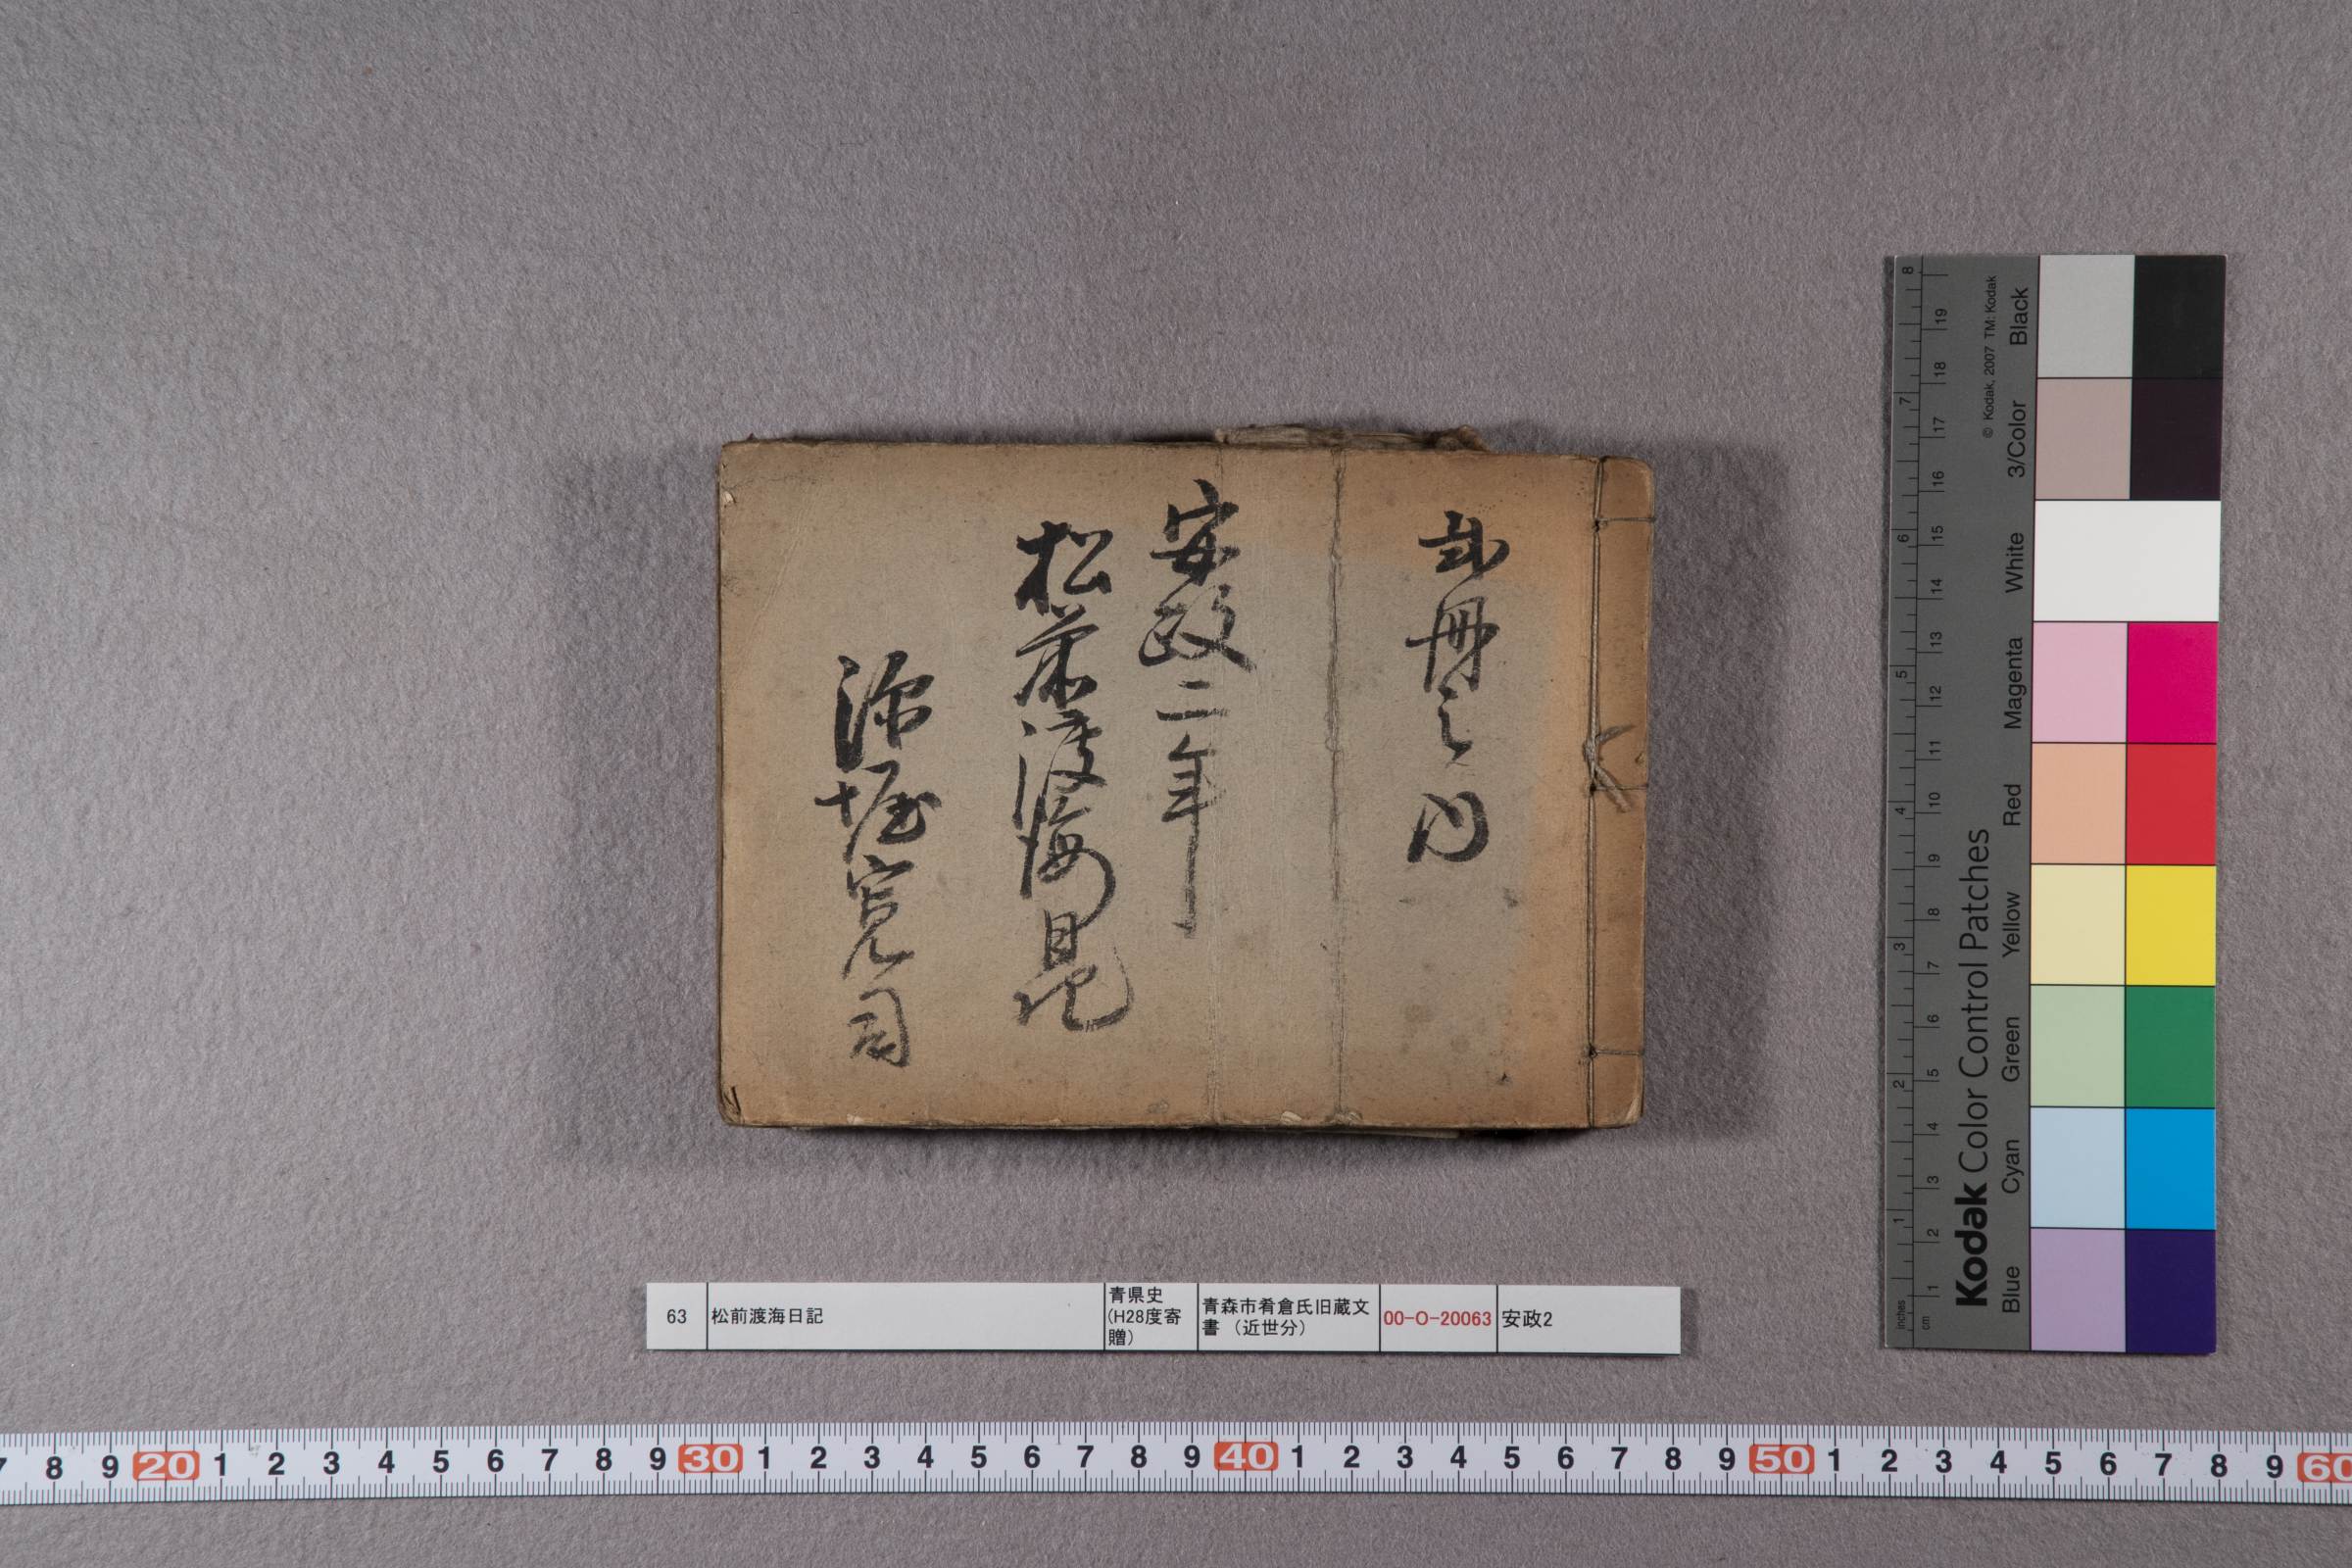 弐冊之内
安政二年
松前渡海日記
深堀寛司
63 松前渡海日記 青県史(H28度寄贈) 青森市肴倉氏旧蔵文書（近世分） 00-O-20063 安政2
7 8 9 20 1 2 3 4 5 6 7 8 9 30 1 2 3 4 5 6 7 8 9 40 1 2 3 4 5 6 7 8 9 50 1 2 3 4 5 6 7 8 9 60
Kodak Color Control Patches
© Kodak, 2007 TM: Kodak
Blue Cyan Green Yellow Red Magenta White 3/Color Black
inches 1 2 3 4 5 6 7 8
cm 1 2 3 4 5 6 7 8 9 10 11 12 13 14 15 16 17 18 19